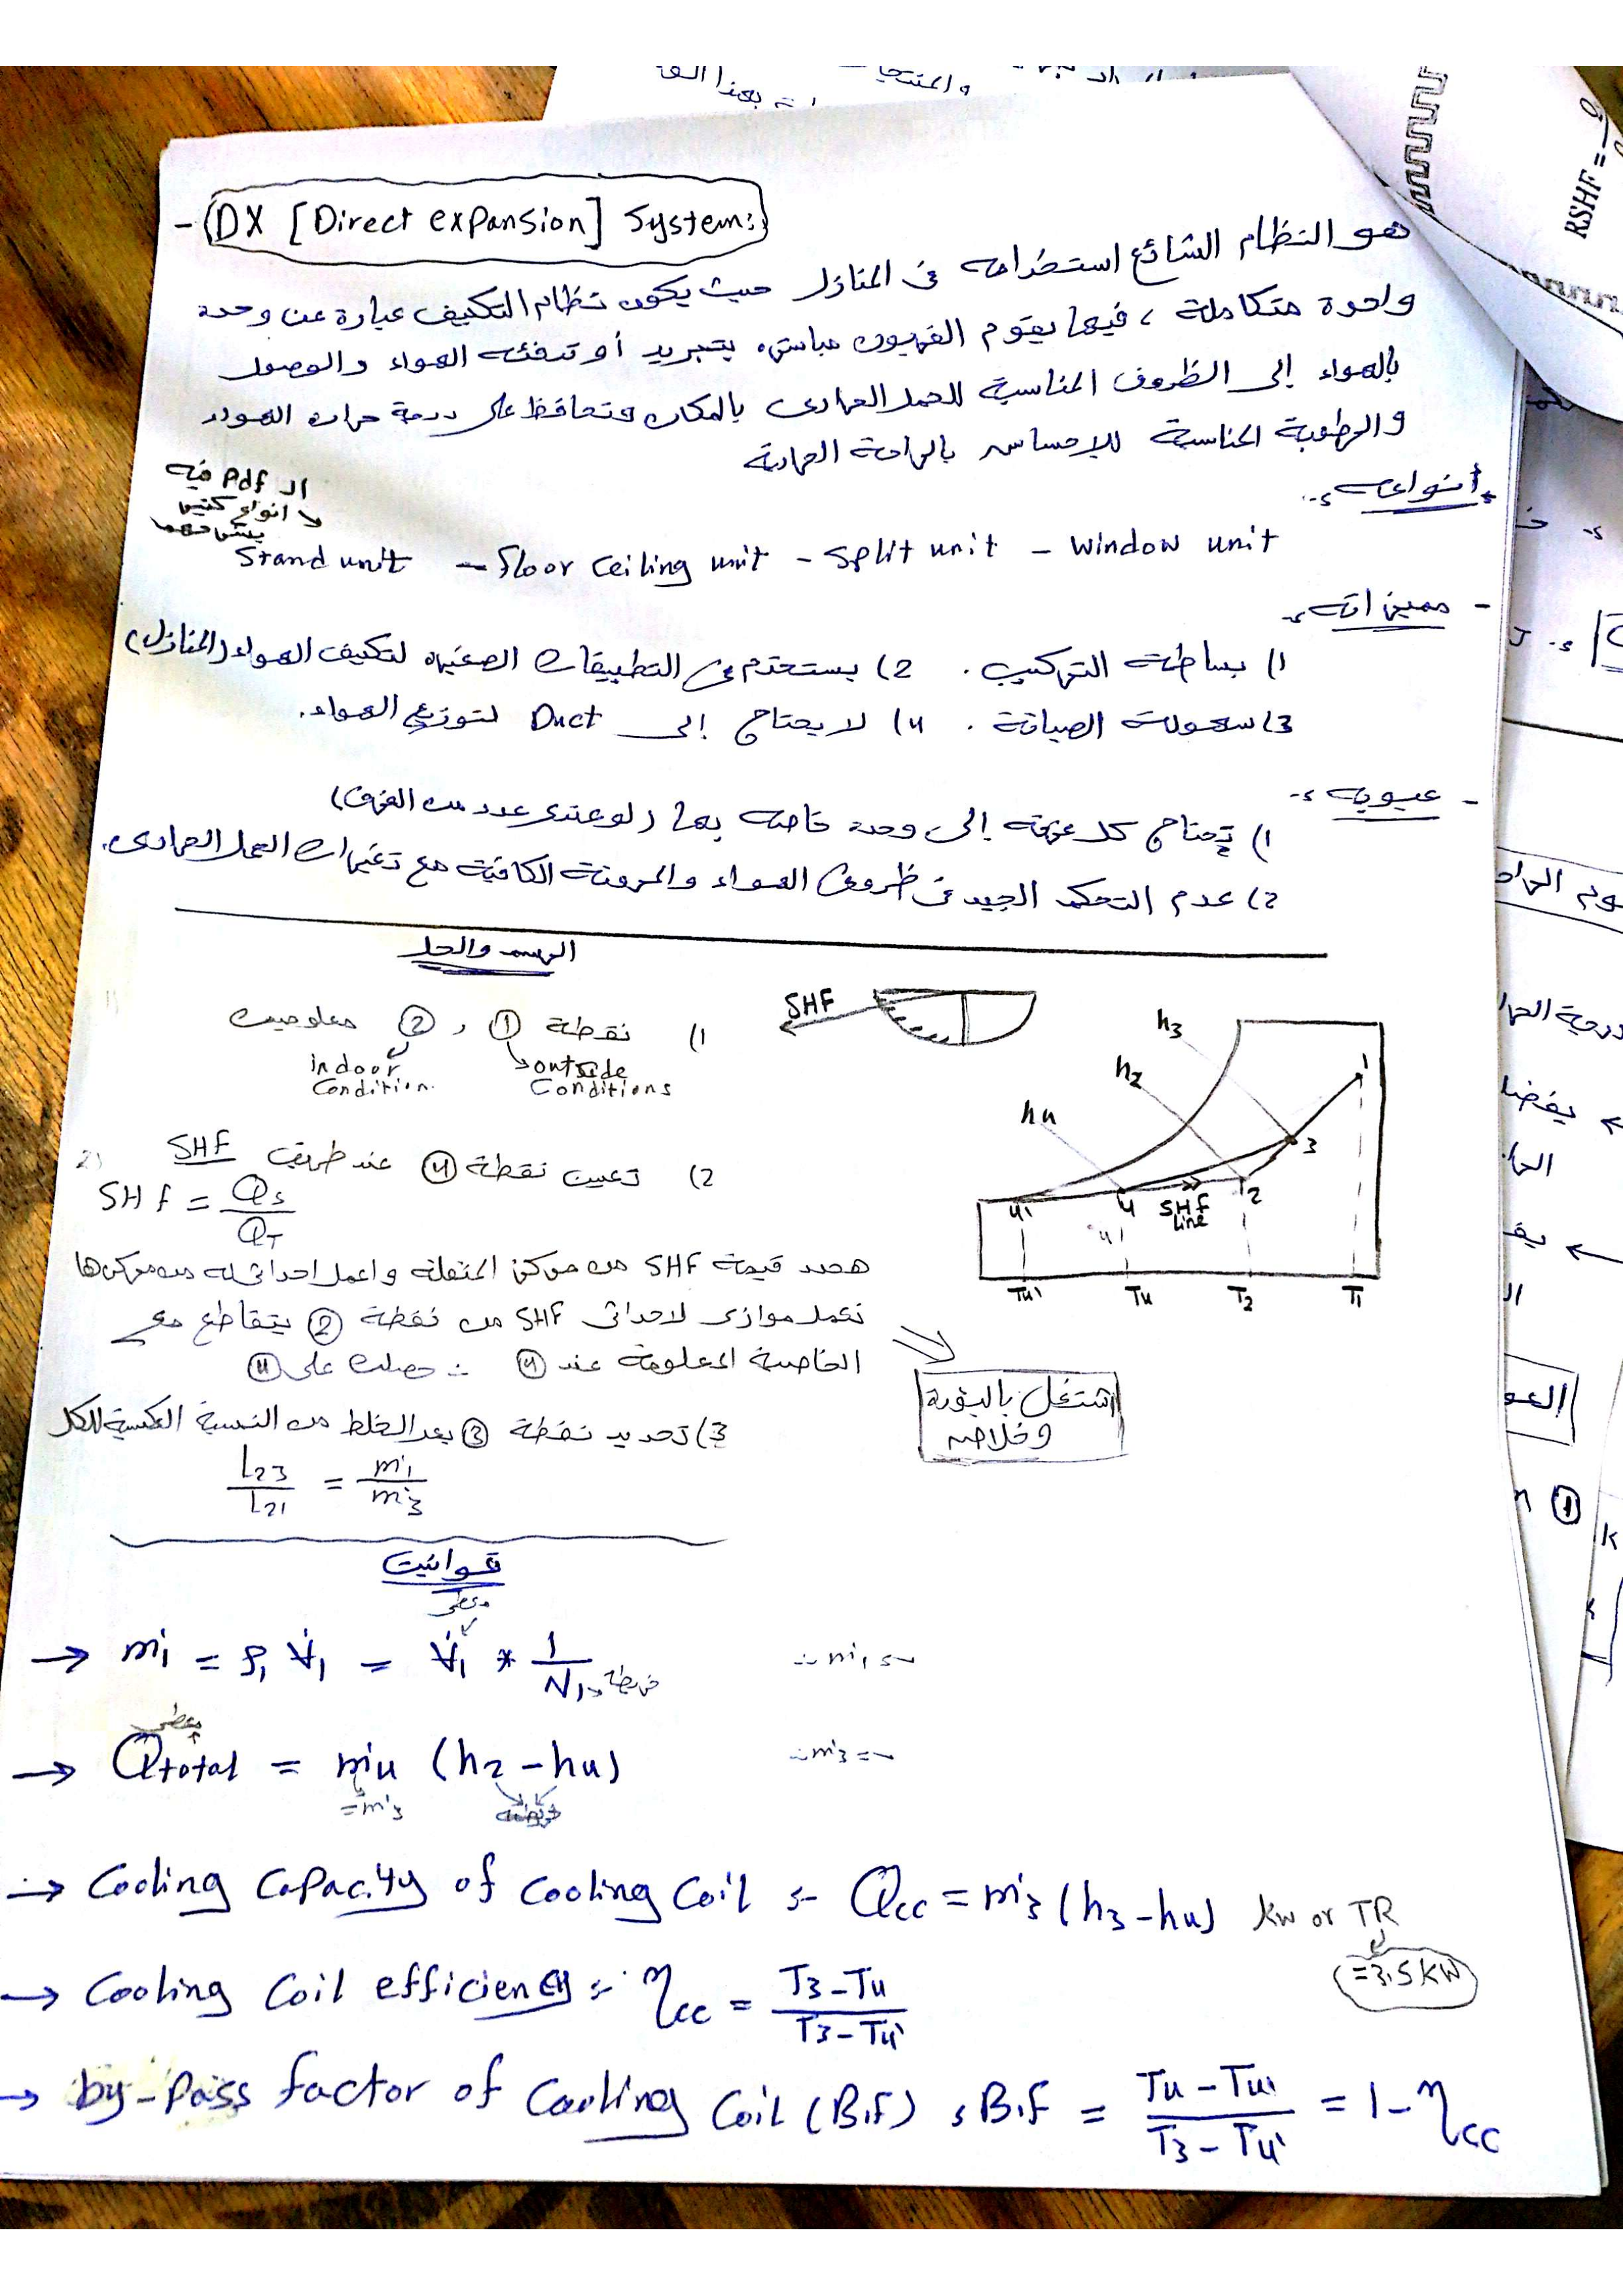 والمنتجا
بهذا
RSHF =
- DX [Direct expansion] System:
هو النظام الشائع استخدامه فى المنازل حيث يكون نظام التكييف عبارة عن وحدة
واحدة متكاملة ، فيها يقوم الفريون مباشره بتبريد أو تدفئه الهواء والوصول
بالهواء إلى الظروف المناسبة للحمل الحرارى بالمكان وتحافظ على درجة حراره الهواء
والرطوبة المناسبة للإحساس بالراحة الحرارية
أنواعه :-
ال Pdf فيه
انواع كتير
بس مهم
Stand unit - floor ceiling unit - split unit - window unit
- مميزاته :-
1) بساطة التركيب . 2) يستخدم فى التطبيقات الصغيره لتكييف الهواء (المنازل)
3) سهولة الصيانة . 4) لا يحتاج إلى Duct لتوزيع الهواء .
- عيوبه :-
1) تحتاج كل غرفة إلى وحدة خاصه بها (لو عندى عدد من الغرف)
2) عدم التحكم الجيد فى ظروف الهواء والمرونة الكافية مع تغيرات الحمل الحرارى.
الرسم والحل
1) نقطة ① ، ② معلومين
indoor condition.
outside conditions
2) تعين نقطة ④ عند طريق SHF
SHF = Qs / QT
هحدد قيمة SHF من مركز المنقلة واعمل احداثى له من مركزها
نعمل موازى لاحداثى SHF من نقطة ② يتقاطع مع
الخاصية المعلومة عند ④ ∴ حصلت على ④
3) تحديد نقطة ③ بعد الخلط من النسبة العكسية للكتل
L23 / L21 = ṁ1 / ṁ3
SHF
h3
h2
h4
1
3
2
4
4'
SHF line
T4' T4 T2 T1
اشتغل بالبقرة
وخلاص
قوانين
معطى
→ ṁ1 = ρ1 V̇1 = V̇1 * 1/v1 خريطة ∴ ṁ1 = ~
معطى
→ Qtotal = ṁ4 (h2 - h4) ∴ ṁ3 = ~
= ṁ3 خريطة
→ Cooling capacity of cooling coil :- Qcc = ṁ3 (h3 - h4) kw or TR
= 3.5 KW
→ Cooling coil efficiency :- ηcc = (T3 - T4) / (T3 - T4')
→ by-pass factor of cooling coil (B.F) : B.F = (T4 - T4') / (T3 - T4') = 1 - ηcc